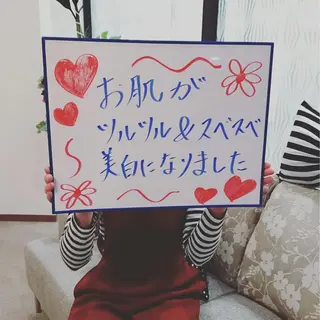 お肌が
ツルツル&スベスベ
美白になりました